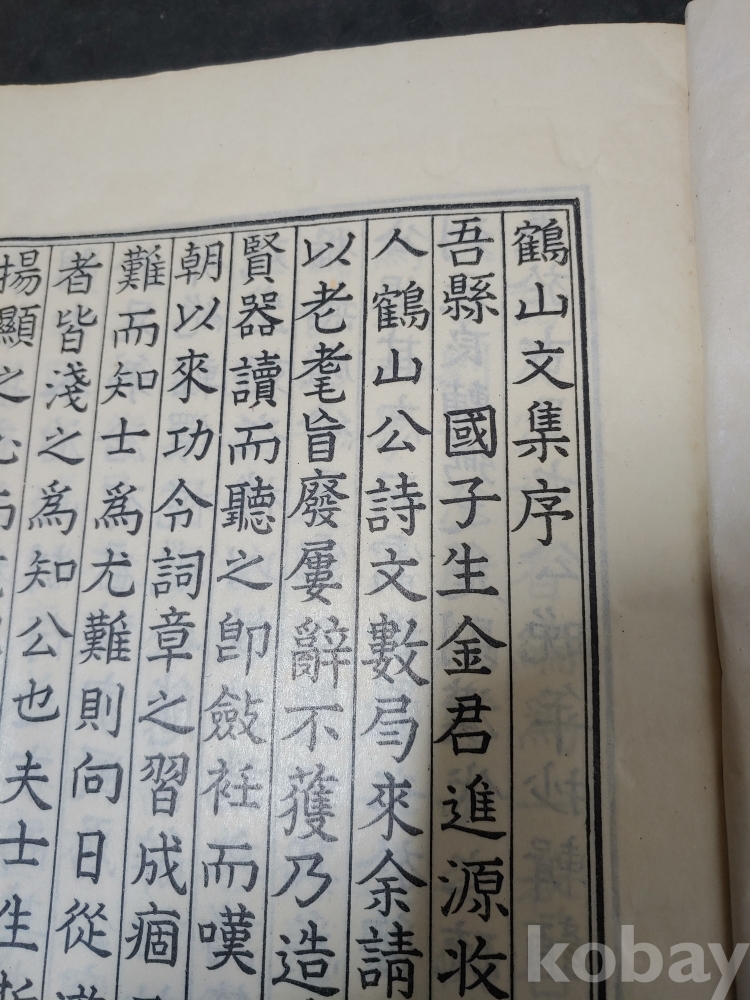 鶴山文集序
吾縣 國子生金君進源收
人鶴山公詩文數卷來余請
以老耄旨廢屢辭不獲乃造
賢器讀而聽之卽斂衽而嘆
朝以來功令詞章之習成痼
難而知士爲尤難則向日從
者皆淺之爲知公也夫士生
揚顯之心而
kobay